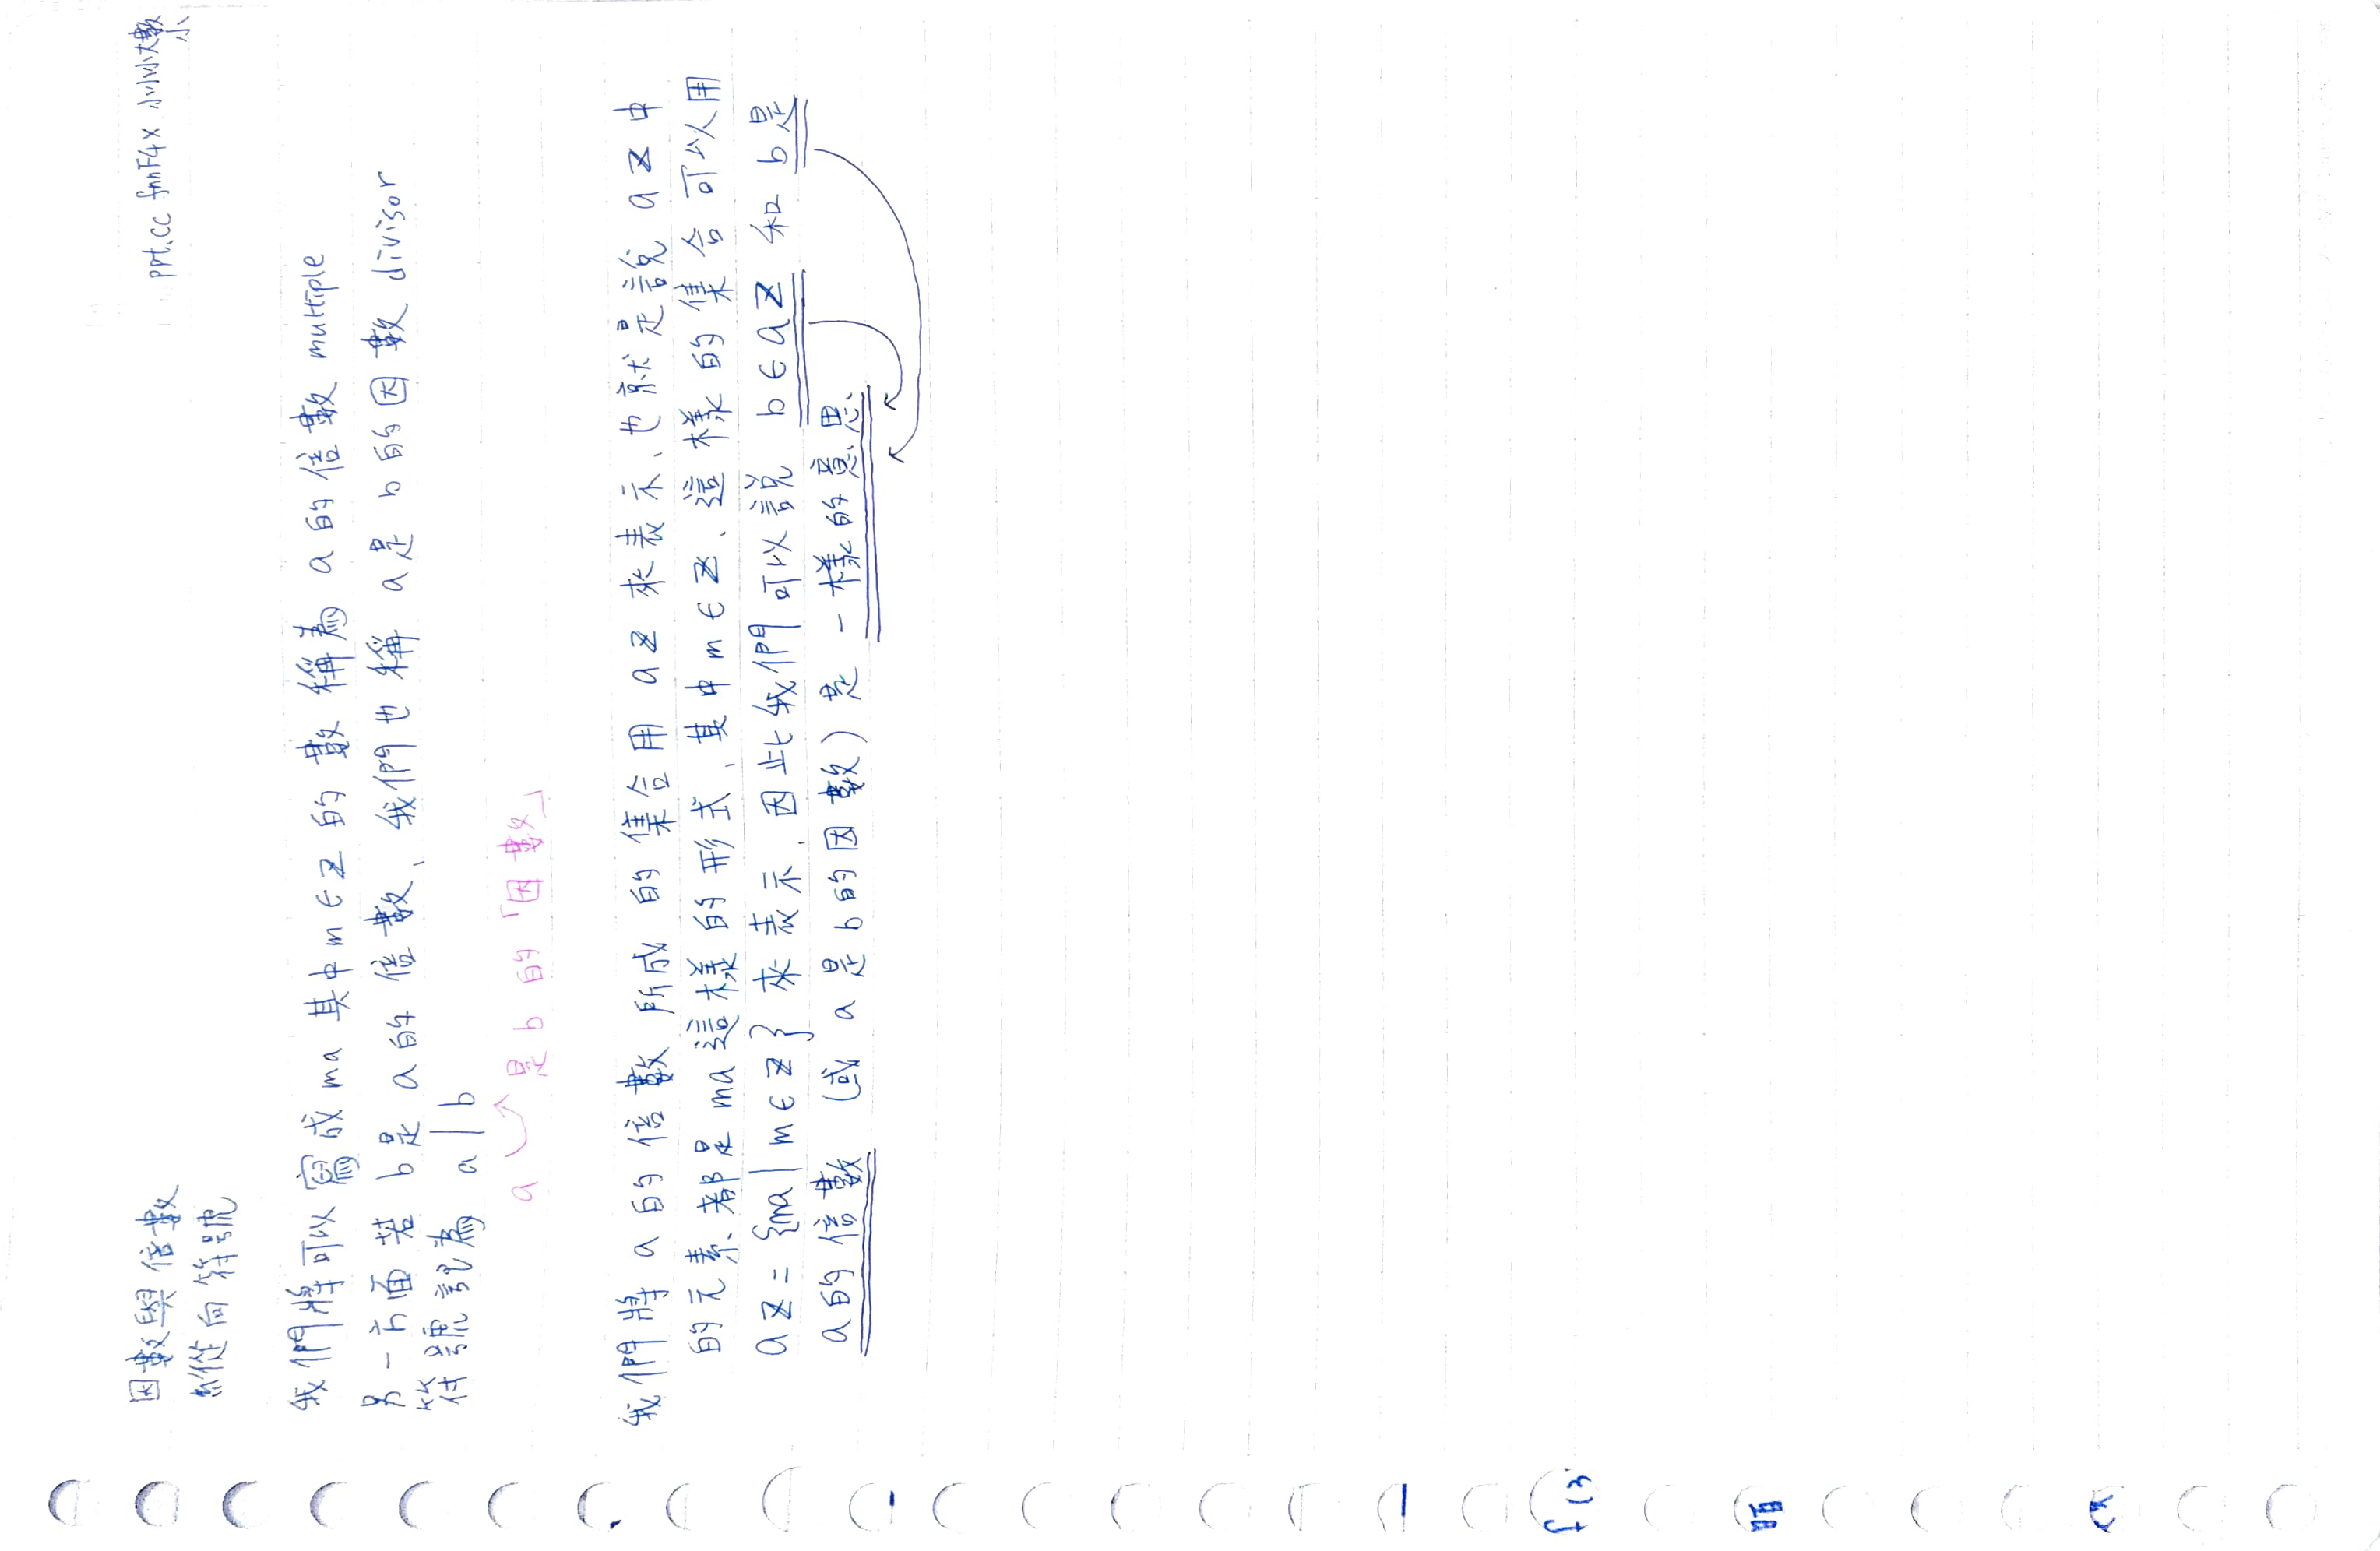 ppt.cc fnnF4x 小小小大數小
因數與倍數
縱向符號
我們將可以寫成 ma 其中 m ∈ Z 的數稱為 a 的倍數 multiple
另一方面若 b 是 a 的倍數、我們也稱 a 是 b 的因數 divisor
符號記為 a | b
a 是 b 的「因數」
我們將 a 的倍數所成的集合用 aZ 來表示、也就是說 aZ 中
的元素、都是 ma 這樣的形式、其中 m ∈ Z、這樣的集合可以用
aZ = {ma | m ∈ Z} 來表示．因此我們可以說 b ∈ aZ 和 b 是
a 的倍數 (或 a 是 b 的因數) 是一樣的意思